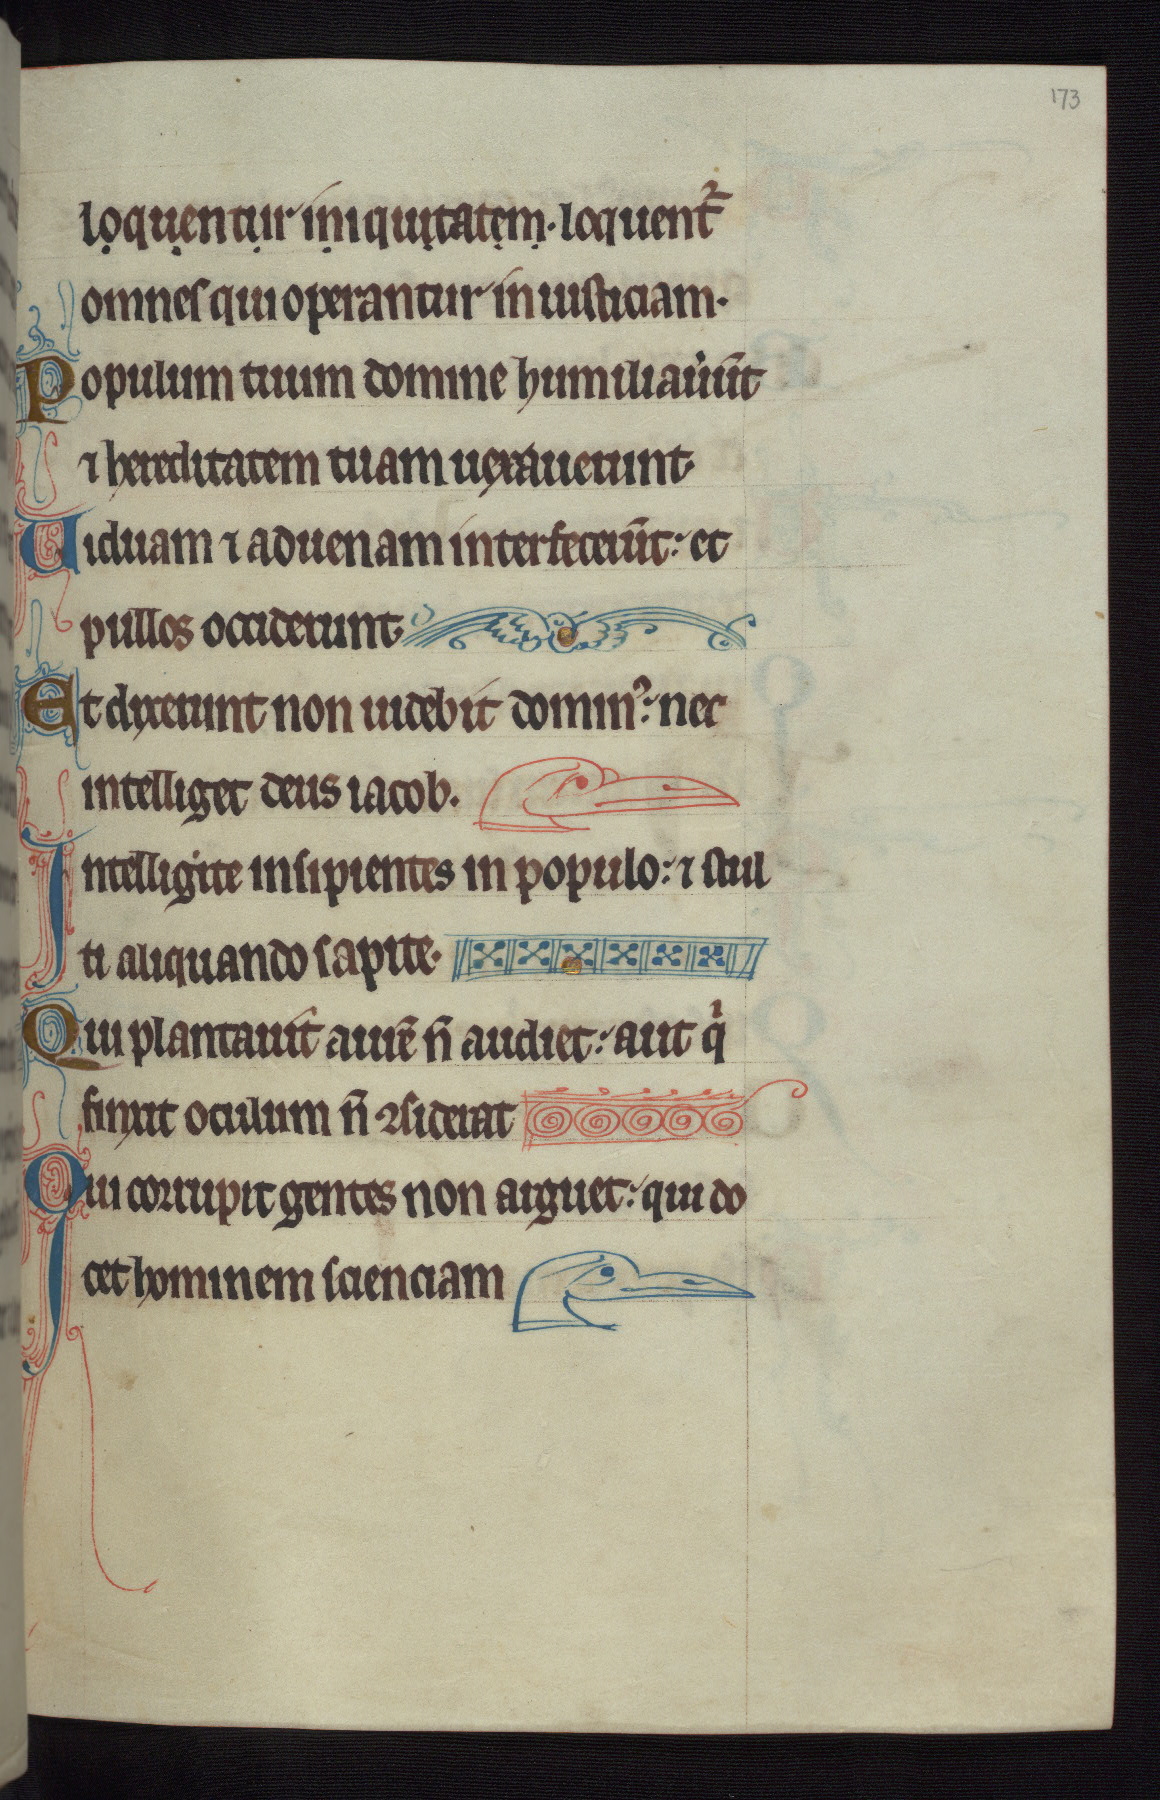 173
loquentur iniquitatem · loquent᷑
omnes qui operantur iniusticiam ·
Populum tuum domine humiliaueru̅t
⁊ hereditatem tuam uexauerunt
Uiduam ⁊ aduenam interfeceru̅t : et
pullos occiderunt
Et dixerunt non uidebit domin᷒ : nec
intelliget deus iacob .
Intelligite insipientes in populo : ⁊ stul
ti aliquando sapite ·
Qui plantauit aure̅ n̅ audiet : aut qͥ
finxit oculum n̅ ꝯsiderat
Qui corrupit gentes non arguet : qui do
cet hominem scienciam